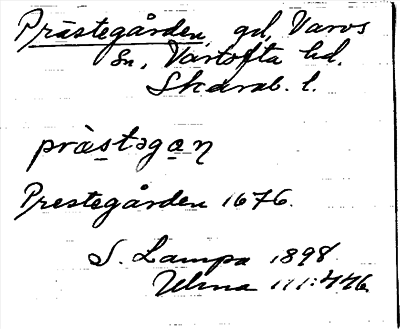 Prästegården, gd, Varvs
sn, Vartofta hd.
Skarab. l.
prȧstəgan
Prestegården 1676.
S. Lampa 1898
Ulma 111:446.